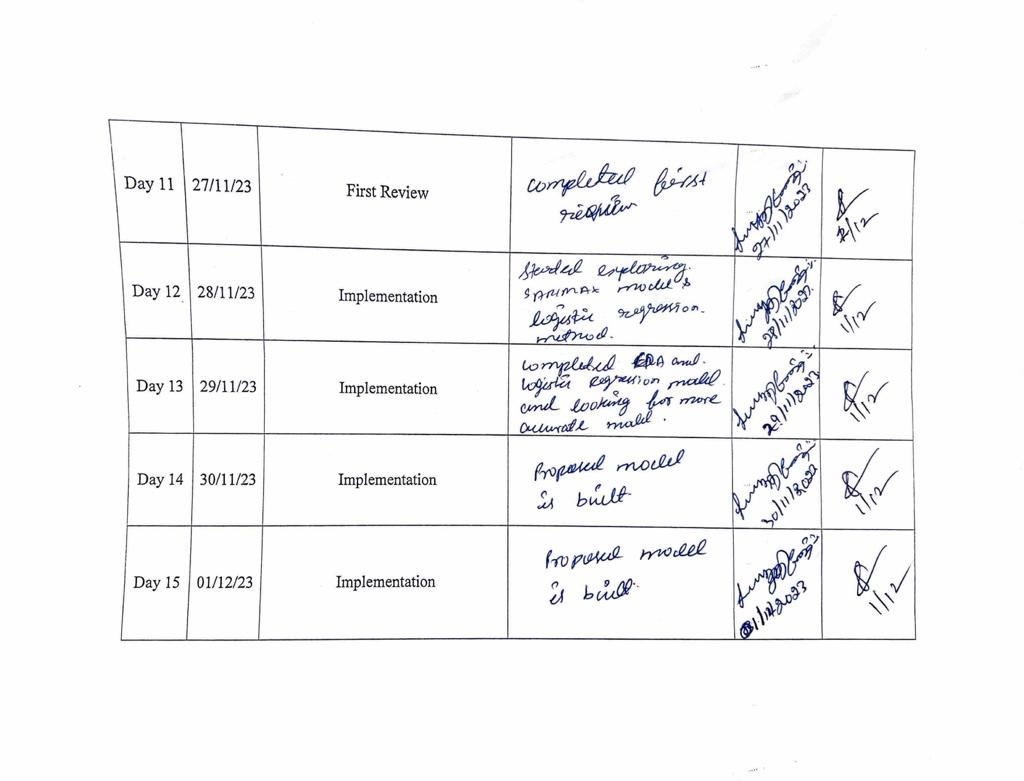 Day 11 27/11/23 First Review completed first
review
27/11/2023
1/12
Day 12 28/11/23 Implementation Started exploring
SARIMAX model &
logistic regression.
method.
28/11/2023
1/12
Day 13 29/11/23 Implementation completed EDA and
logistic Regression model
and looking for more
accurate model.
29/11/2023
1/12
Day 14 30/11/23 Implementation Proposed model
is built
30/11/2023
1/12
Day 15 01/12/23 Implementation Proposed model
is built
01/12/2023
1/12